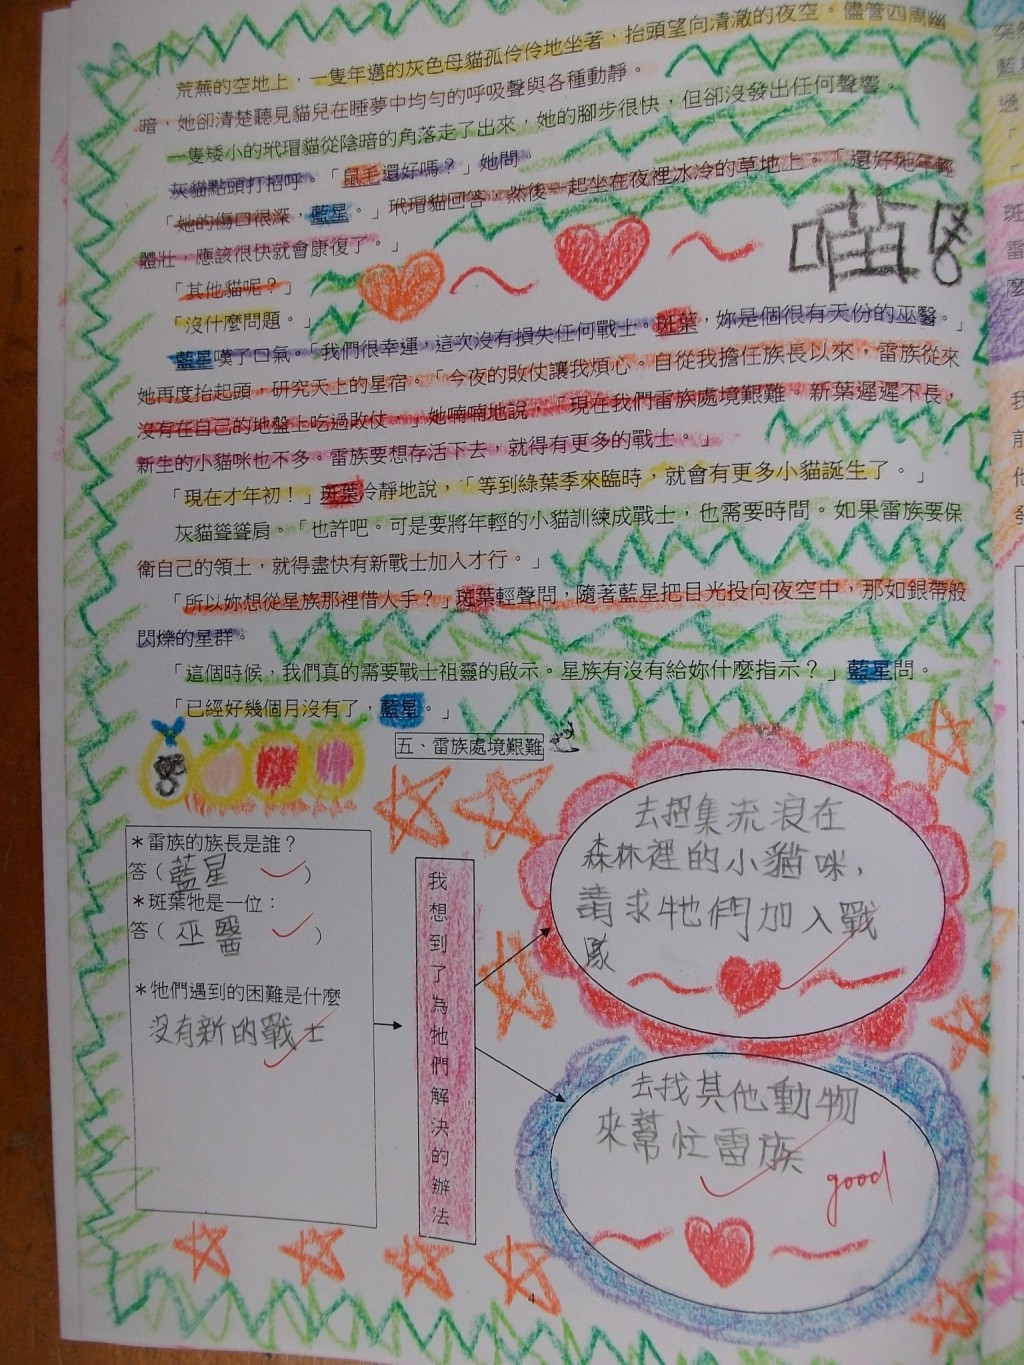 荒蕪的空地上，一隻年邁的灰色母貓孤伶伶地坐著，抬頭望向清澈的夜空。儘管四周幽
暗，她卻清楚聽見貓兒在睡夢中均勻的呼吸聲與各種動靜。
一隻矮小的玳瑁貓從陰暗的角落走了出來，她的腳步很快，但卻沒發出任何聲響。
灰貓點頭打招呼。「鼠毛還好嗎？」她問。
「她的傷口很深，藍星。」玳瑁貓回答，然後一起坐在夜裡冰冷的草地上。「還好她年輕
體壯，應該很快就會康復了。」
「其他貓呢？」
「沒什麼問題。」
藍星嘆了口氣。「我們很幸運，這次沒有損失任何戰士。斑葉，妳是個很有天份的巫醫。」
她再度抬起頭，研究天上的星宿。「今夜的敗仗讓我煩心。自從我擔任族長以來，雷族從來
沒有在自己的地盤上吃過敗仗，」她喃喃地說，「現在我們雷族處境艱難。新葉遲遲不長，
新生的小貓咪也不多。雷族要想存活下去，就得有更多的戰士。」
「現在才年初！」斑葉冷靜地說，「等到綠葉季來臨時，就會有更多小貓誕生了。」
灰貓聳聳肩。「也許吧。可是要將年輕的小貓訓練成戰士，也需要時間。如果雷族要保
衛自己的領土，就得盡快有新戰士加入才行。」
「所以妳想從星族那裡借人手？」斑葉輕聲問，隨著藍星把目光投向夜空中，那如銀帶般
閃爍的星群。
「這個時候，我們真的需要戰士祖靈的啟示。星族有沒有給妳什麼指示？」藍星問。
「已經好幾個月沒有了，藍星。」
五、雷族處境艱難
＊雷族的族長是誰？
答（藍星）
＊斑葉牠是一位：
答（巫醫）
＊牠們遇到的困難是什麼
沒有新的戰士
我想到了為牠們解決的辦法
去招集流浪在
森林裡的小貓咪，
請求牠們加入戰
隊
去找其他動物
來幫忙雷族
good
4